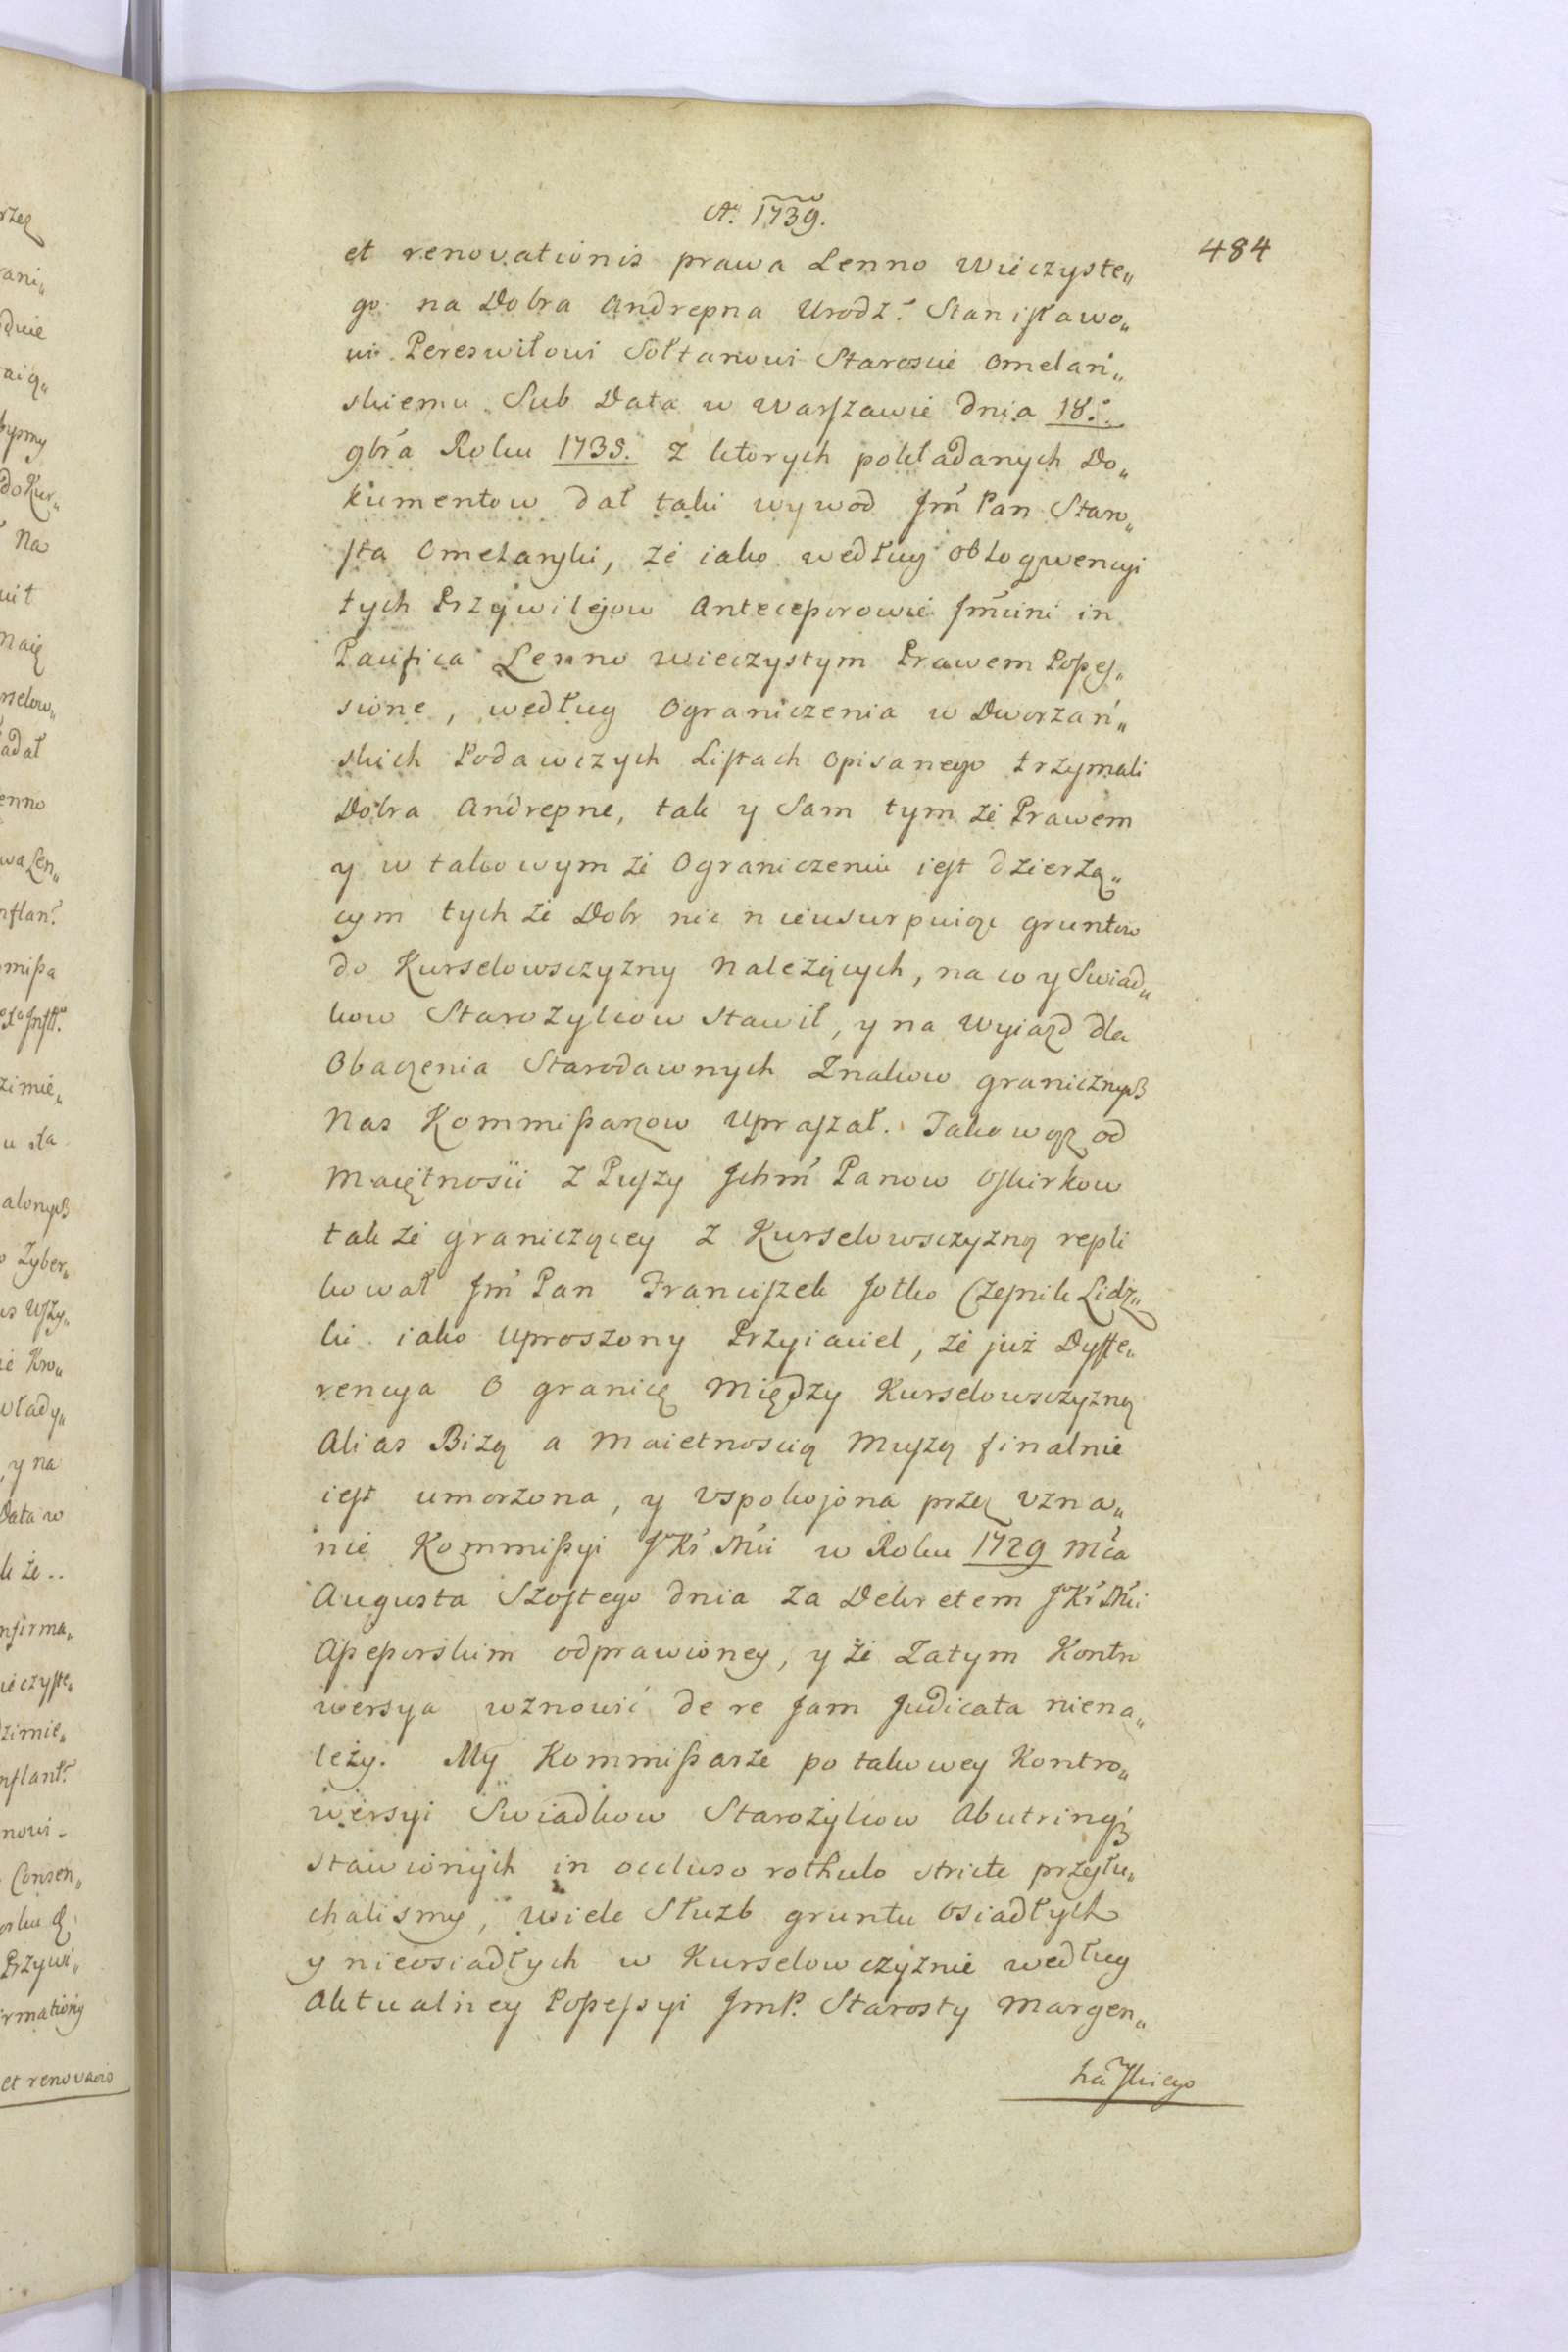 Aº 1739.
484
et renovationis prawa Lenno Wieczyste„
go na Dobra Andrepna Urodz. Stanisławo„
wi Pereswitowi Sołtanowi Staroscie Omelań„
skiemu Sub Data w Warszawie dnia 18.
9bra Roku 1738. z ktorych pokładanych Do„
kumentow dał taki wywod Jm Pan Staro„
sta Omelanski, że iako według obloqwencyi
tych Przywilejow Antecessorowie Jmcini in
Pacifica Lenno wieczystym Prawem Posses„
sione, według Ograniczenia w Dworzań„
skich Podawczych Listach Opisanego trzymali
Dobra Andrepne, tak y Sam tym że Prawem
y w takowym że Ograniczeniu iest dzierżą„
cym tych że Dobr nic nieusurpuiąc gruntow
do Kurselowsczyzny należących, na co y Swiad„
kow Starożylcow stawił, y na wyiazd dla
Obaczenia Starodawnych Znakow granicznych
Nas Kommissarzow Upraszał. Takowąż od
Maiętności z Puszy Jchm Panow Oskirkow
tak że graniczącey z Kurselowsczyzną repli
kował Jm Pan Franciszek Jotko Czesnik Lidz„
ki iako Uproszony Przyiaciel, że już Dyffe„
rencya O granicę Między Kurselowsczyzną
Alias Bizą a Maietnoscią Muszą finalnie
iest umorzona, y Vspokojona przez Vzna„
nie Kommissyi JKr Mci w Roku 1729 Mca
Augusta Szostego dnia za Dekretem JKr Mci
Assessorskim odprawioney, y że Zatym Kontro
wersya wznowić de re Jam Judicata niena„
leży. My Kommissarze po takowey Kontro„
wersyi Swiadkow Starożylcow Abutrinq
stawionych in occluso rothulo stricte przesłu„
chalismy, wiele Służb gruntu Osiadłych
y nieosiadłych w Kurselowczyznie według
Aktualney Possessyi JmP. Starosty Margen„
hãskiego
et renovaois